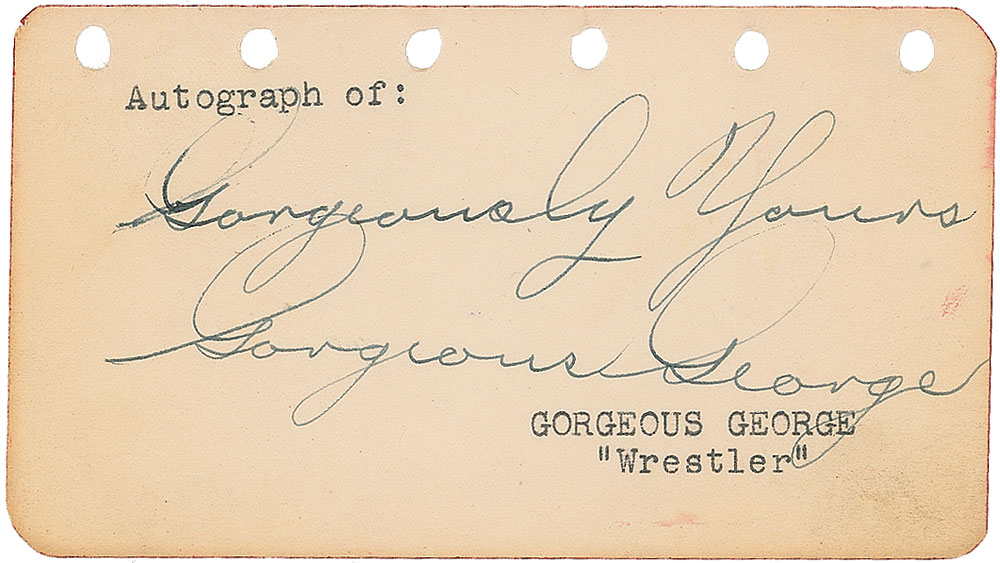 Autograph of:
Gorgeously Yours
Gorgeous George
GORGEOUS GEORGE
"Wrestler"